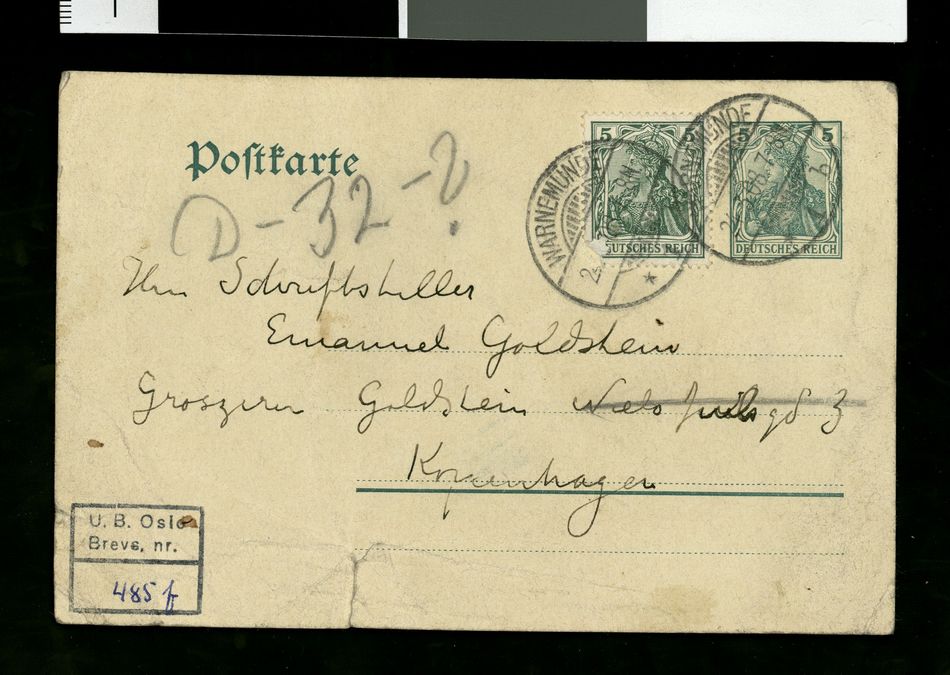 Postkarte
D-32-?
5 5
DEUTSCHES REICH
5 5
DEUTSCHES REICH
WARNEMÜNDE
Herrn Schriftsteller
Emanuel Goldstein
Groszerer Goldstein Niels Juelsgd 3
Kopenhagen
U. B. Oslo
Brevs. nr.
485 f